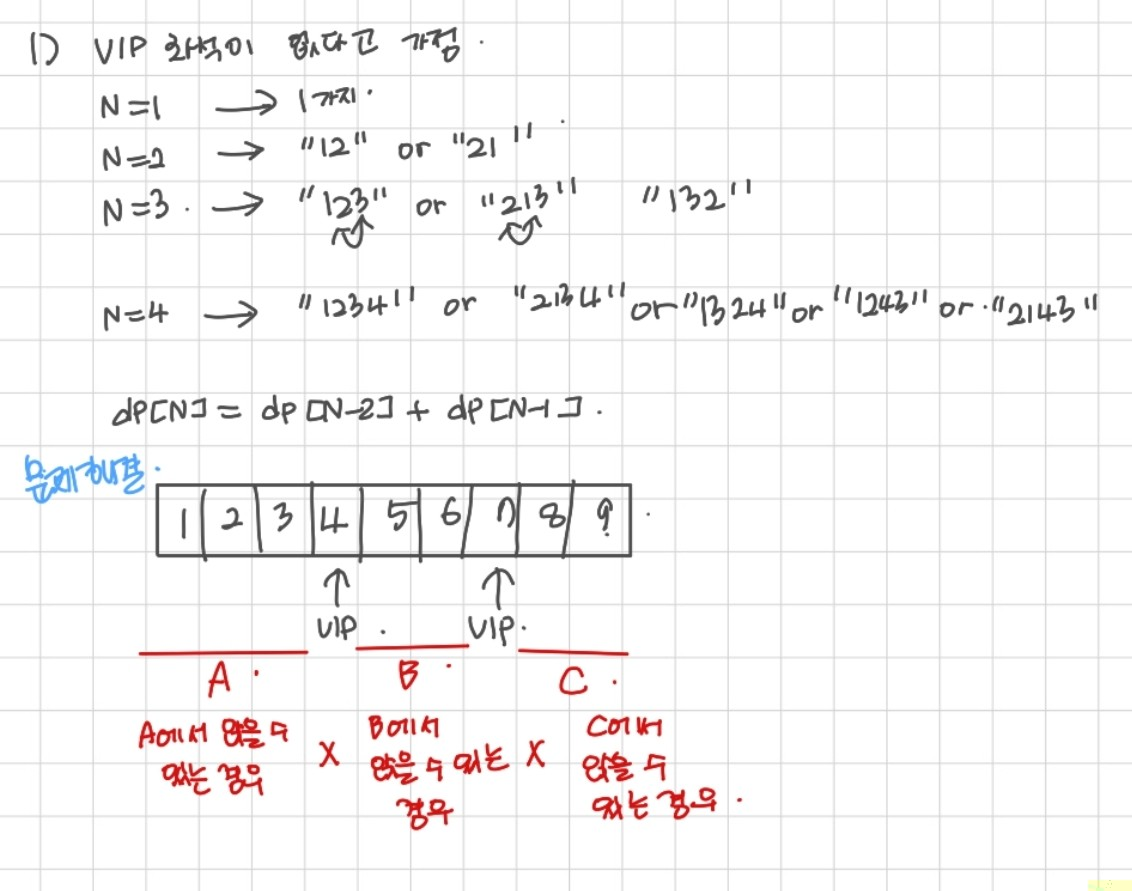 1) VIP 좌석이 없다고 가정.
N=1 → 1가지.
N=2 → "12" or "21"
N=3. → "123" or "213" "132"
N=4 → "1234" or "2134" or "1324" or "1243" or "2143"
dp[N] = dp[N-2] + dp[N-1].
문제해결.
1 2 3 4 5 6 7 8 9
↑ ↑
VIP. VIP.
A. B. C.
A에서 앉을 수 B에서 C에서
있는 경우 X 앉을 수 있는 X 앉을 수
경우 있는 경우.